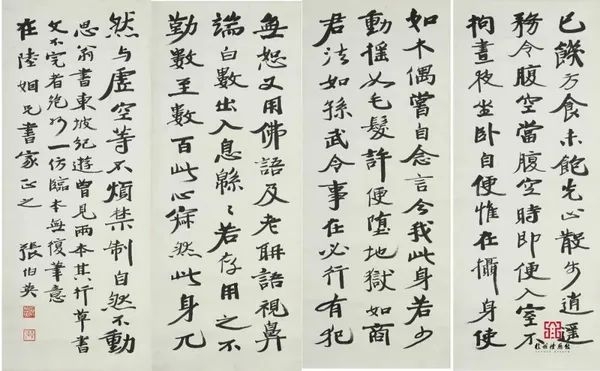 已饑方食未飽先止散步逍遥
務令腹空當腹空時即便入室不
拘晝夜坐卧自便惟在攝身使
如木偶嘗自念言今我此身若少
動摇如毛髮許便墮地獄如商
君法如孫武令事在必行有犯
無恕又用佛語及老聃語視鼻
端白數出入息緜〻若存用之不
勤數至數百此心寂然此身兀
然与虚空等不煩禁制自然不動
思翁書東坡紀遊曾見兩本其行草書
文不完者絶妙一仿臨本無復筆意
在陸姻兄書家正之
張伯英